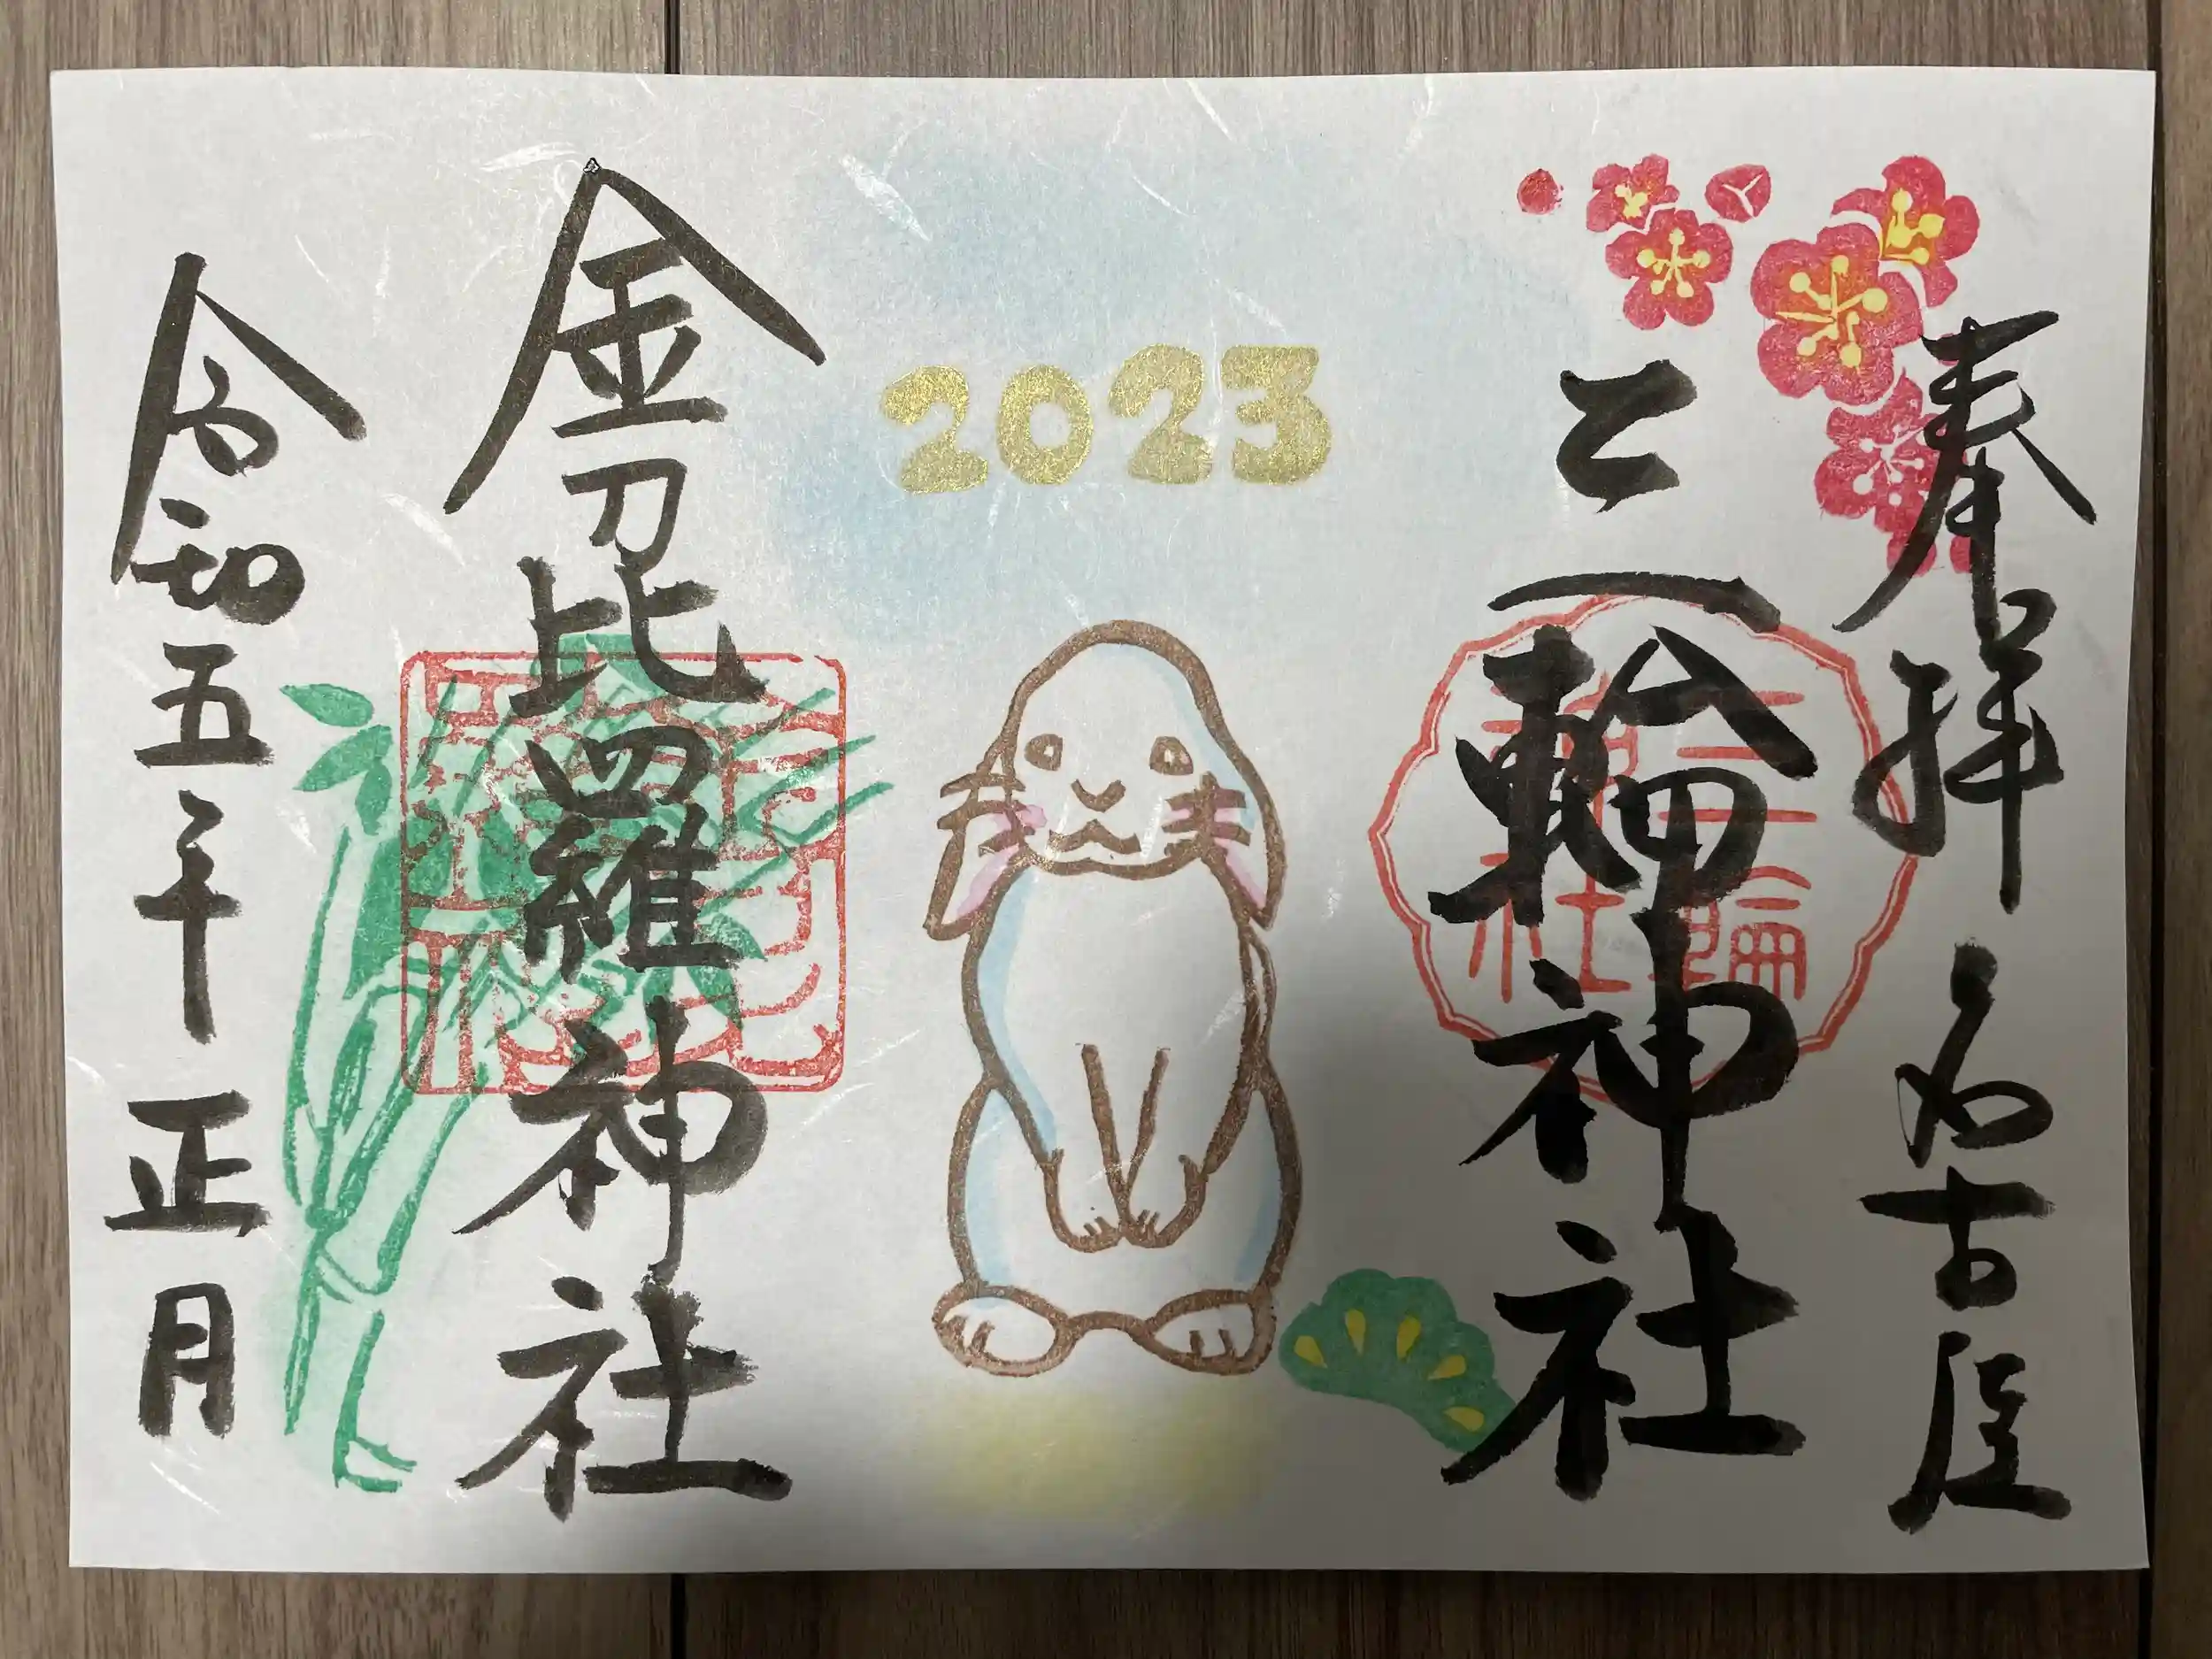 奉拝 名古屋
三輪神社
三輪
神社
2023
金刀比羅神社
令和五年正月